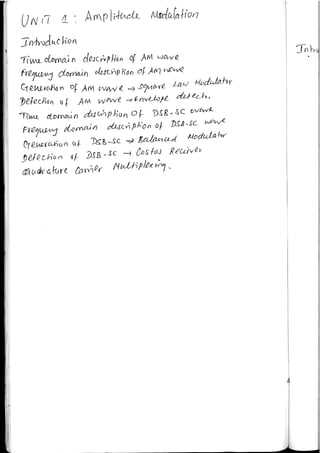 UNIT 1 : Amplitude Modulation
Introduction
Time domain description of AM wave
Frequency domain description of AM wave
Generation of AM wave → Square Law Modulator
Detection of AM wave → Envelope detech.
Time domain description OF DSB-SC wave
Frequency domain description of DSB-SC wave
Generation of DSB-SC → Balanced Modulator
Detection of DSB-SC → Costas Receiver
Quadrature Carrier Multiplexing.